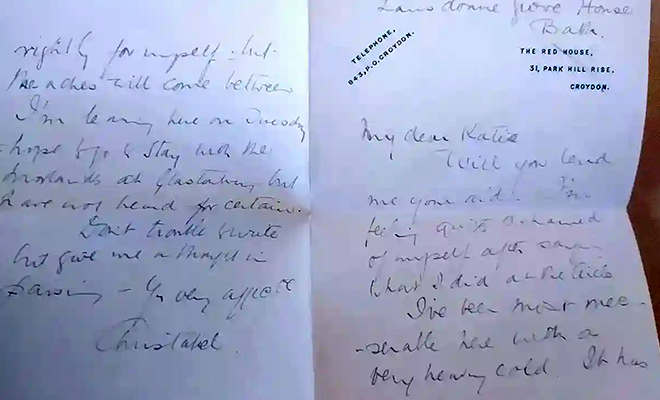 Lansdowne Grove House
Bath.
TELEPHONE,
P.O. CROYDON.
THE RED HOUSE,
31, PARK HILL RISE,
CROYDON.
My dear Katie
Will you lend
me your aid. I'm
feeling quite ashamed
of myself after saying
what I did at the
I've been most mee-
-serable here with a
very heavy cold. It has
rightly for myself - but
the aches will come between
I'm leaving here on Tuesday
- hope to go & stay with the
at Glastonbury but
have not heard for certain.
Don't trouble to write
but give me a thought in
passing - Yr very affecte
Christabel.